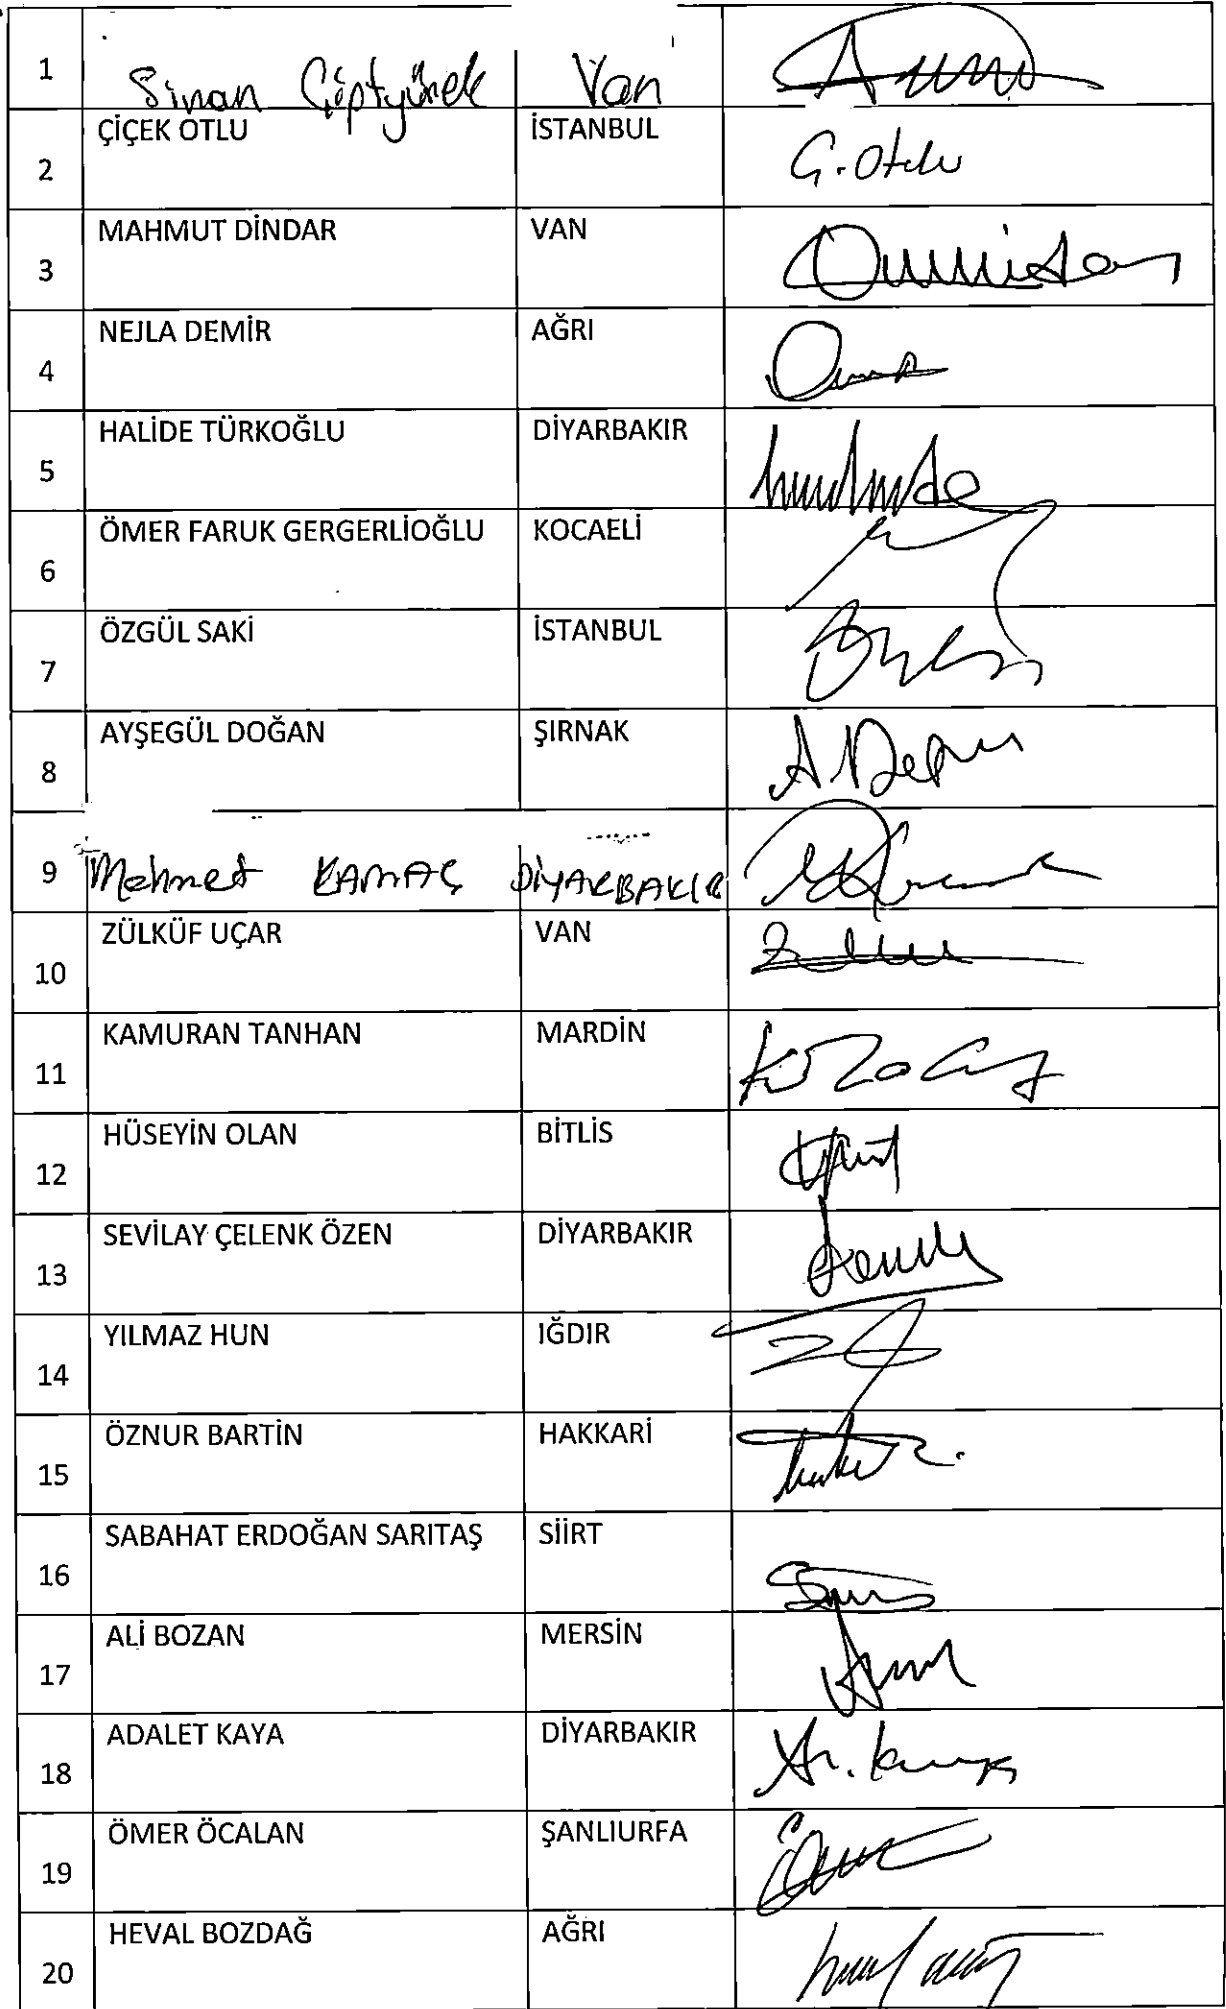 1 Sinan Çiftyürek Van
2 ÇİÇEK OTLU İSTANBUL Ç.Otlu
3 MAHMUT DİNDAR VAN
4 NEJLA DEMİR AĞRI
5 HALİDE TÜRKOĞLU DİYARBAKIR
6 ÖMER FARUK GERGERLİOĞLU KOCAELİ
7 ÖZGÜL SAKİ İSTANBUL
8 AYŞEGÜL DOĞAN ŞIRNAK
9 Mehmet KAMAÇ DİYARBAKIR
10 ZÜLKÜF UÇAR VAN
11 KAMURAN TANHAN MARDİN
12 HÜSEYİN OLAN BİTLİS
13 SEVİLAY ÇELENK ÖZEN DİYARBAKIR
14 YILMAZ HUN IĞDIR
15 ÖZNUR BARTİN HAKKARİ
16 SABAHAT ERDOĞAN SARITAŞ SİİRT
17 ALİ BOZAN MERSİN
18 ADALET KAYA DİYARBAKIR
19 ÖMER ÖCALAN ŞANLIURFA
20 HEVAL BOZDAĞ AĞRI